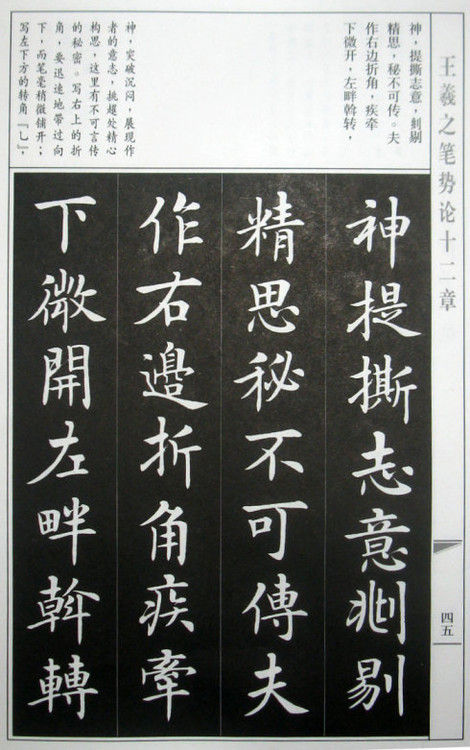 王羲之笔势论十二章
四五
神，提撕志意，剔
精思，秘不可传。夫
作右边折角，疾牵
下微开，左畔斡转，
神，突破沉闷，展现作
者的意志，挑趯处精心
构思，这里有不可言传
的秘密。写右上的折
角，要迅速地带过向
下，而笔毫稍微铺开；
写左下方的转角『乚』，
神提撕志意剔
精思秘不可傳夫
作右邊折角疾牽
下微開左畔斡轉